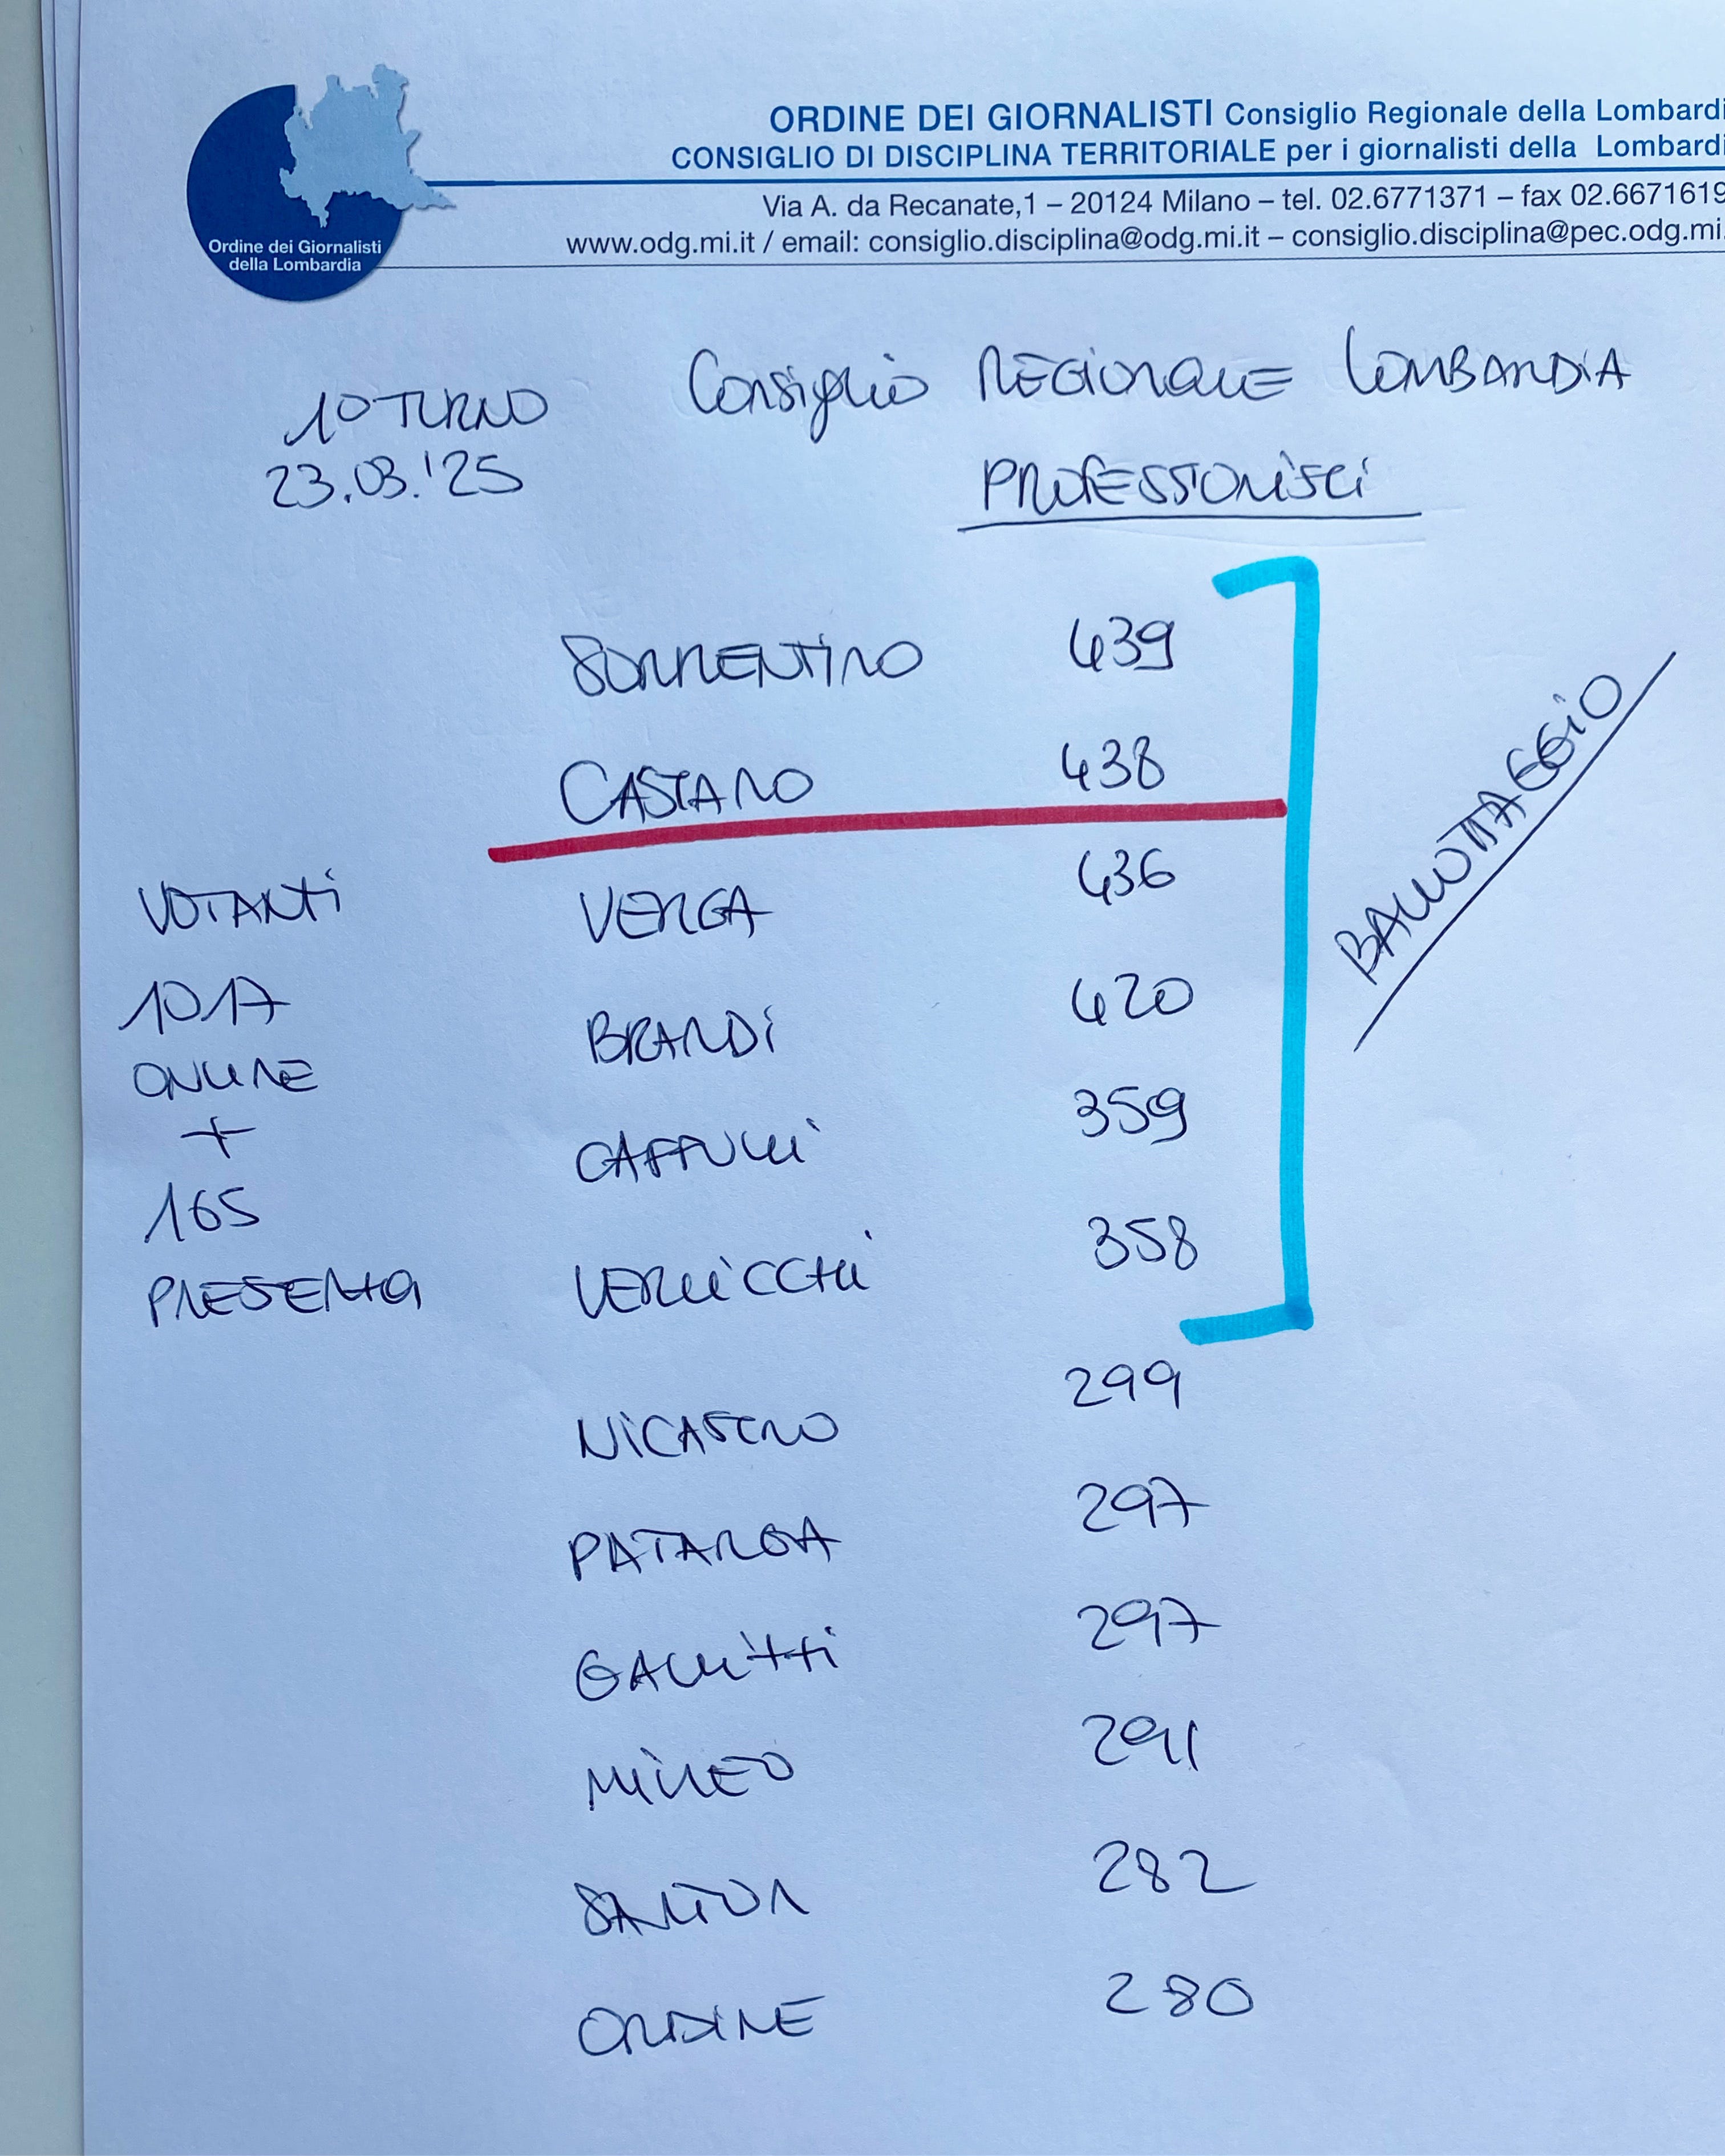 ORDINE DEI GIORNALISTI Consiglio Regionale della Lombardi
CONSIGLIO DI DISCIPLINA TERRITORIALE per i giornalisti della Lombardi
Via A. da Recanate,1 – 20124 Milano – tel. 02.6771371 – fax 02.6671619
www.odg.mi.it / email: consiglio.disciplina@odg.mi.it – consiglio.disciplina@pec.odg.mi.
Ordine dei Giornalisti
della Lombardia
1º TURNO
23.03.'25
Consiglio REGIONALE LOMBARDIA
PROFESSIONISTI
SORRENTINO 439
CASTANO 438
VERGA 436
BRANDI 420
CAFFULLI 359
VERLICCHI 358
BALLOTTAGGIO
VOTANTI
1017
ONLINE
+
165
PRESENZA
NICASTRO 299
PATARGA 297
GALLITTI 297
MILLEO 291
SALTON 282
ORDINE 280